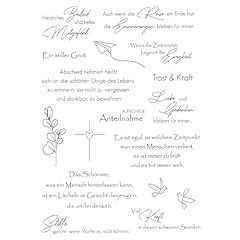 Herzliches Beileid
und tiefes
Mitgefühl
Auch wenn die Reise ein Ende hat
die Erinnerungen bleiben für immer.
Ein stiller Gruß
Wenn die Zeit endet,
beginnt die Ewigkeit
Abschied nehmen heißt,
sich an die schönen Dinge des Lebens
zu erinnern, sie nicht zu vergessen
und dankbar zu bewahren
Trost & Kraft
Liebe und
Gedanken
bleiben für immer.
AUFRICHTIGE
Anteilnahme
Es ist egal, zu welchem Zeitpunkt
man einen Menschen verliert,
es ist immer zu früh
und es tut immer weh.
Das Schönste,
was ein Mensch hinterlassen kann,
ist ein Lächeln im Gesicht derjenigen,
die an ihn denken.
Stille
spricht, wenn Worte es nicht können.
Viel Kraft
in diesen schweren Stunden